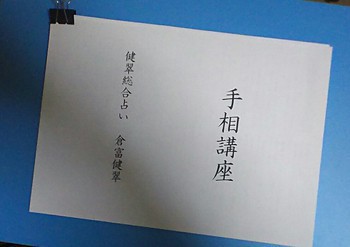 手相講座
健翠総合占い　倉富健翠